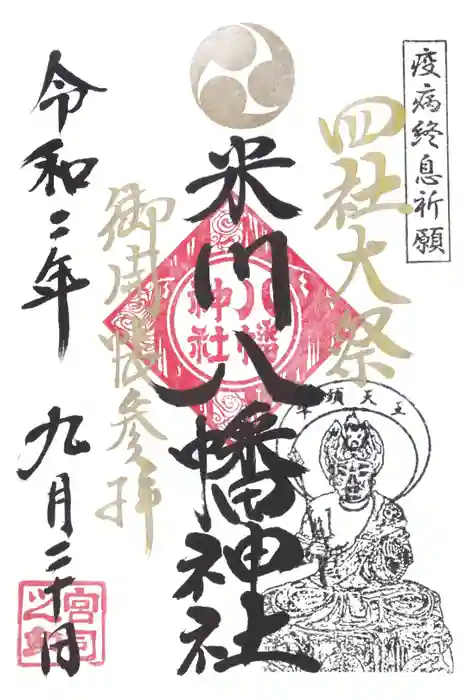 疫病終息祈願
四社大祭
牛頭天王
米川八幡神社
八幡
神社
御開帳参拝
令和二年
九月二十日
宮司
之印